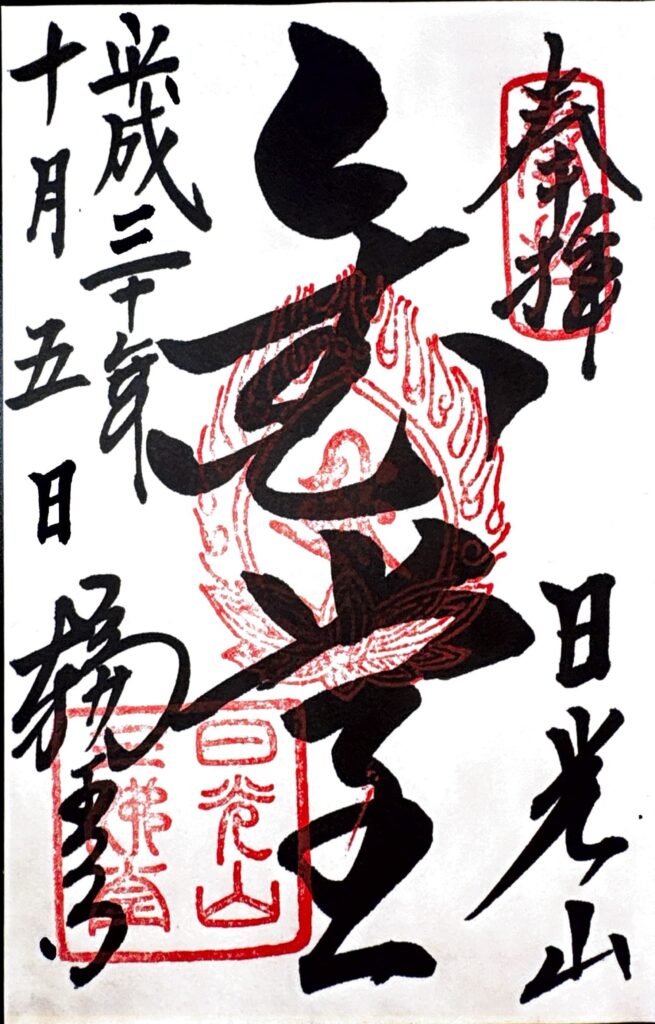 奉拝
日光山
金堂
平成三十年
十月五日
輪王寺
日光山
三佛堂